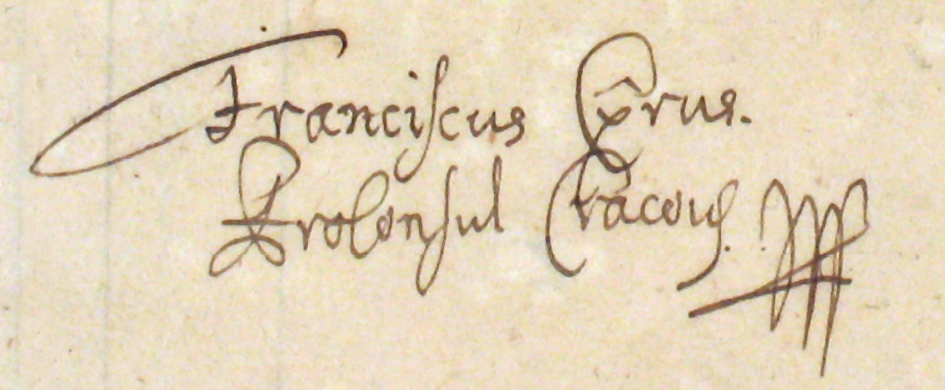 Franciscus Cyrus.
Proconsul Cracovi